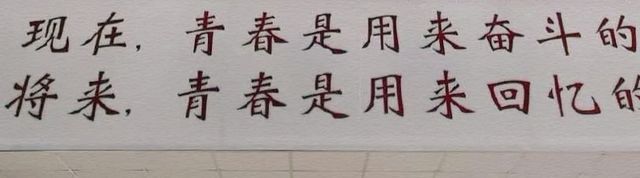 现在,青春是用来奋斗的
将来,青春是用来回忆的